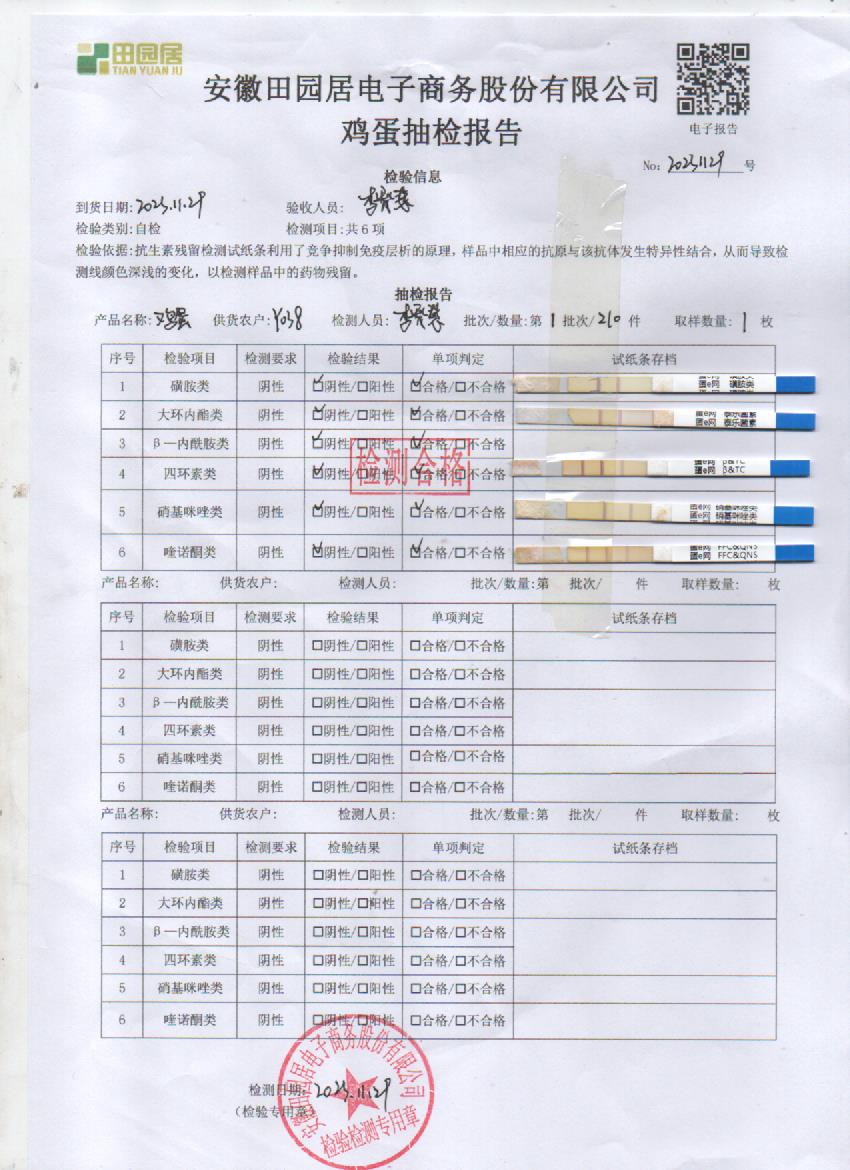 田园居
TIAN YUAN JU
安徽田园居电子商务股份有限公司
鸡蛋抽检报告
电子报告
No: 20231129 号
检验信息
到货日期: 2023.11.29 验收人员:
检验类别: 自检 检测项目: 共 6 项
检验依据: 抗生素残留检测试纸条利用了竞争抑制免疫层析的原理, 样品中相应的抗原与该抗体发生特异性结合, 从而导致检
测线颜色深浅的变化, 以检测样品中的药物残留。
抽检报告
产品名称: 鸡蛋 供货农户: Y038 检测人员: 批次/数量:第 1 批次/ 210 件 取样数量: 1 枚
序号 检验项目 检测要求 检验结果 单项判定 试纸条存档
1 磺胺类 阴性 ☑阴性/□阳性 ☑合格/□不合格 蛋e网 磺胺类
2 大环内酯类 阴性 ☑阴性/□阳性 ☑合格/□不合格 蛋e网 泰乐菌素
3 β—内酰胺类 阴性 ☑阴性/□阳性 ☑合格/□不合格
4 四环素类 阴性 ☑阴性/□阳性 ☑合格/□不合格 蛋e网 β&TC
检测合格
5 硝基咪唑类 阴性 ☑阴性/□阳性 ☑合格/□不合格 蛋e网 硝基咪唑类
6 喹诺酮类 阴性 ☑阴性/□阳性 ☑合格/□不合格 蛋e网 FFC&QNS
产品名称: 供货农户: 检测人员: 批次/数量:第 批次/ 件 取样数量: 枚
序号 检验项目 检测要求 检验结果 单项判定 试纸条存档
1 磺胺类 阴性 □阴性/□阳性 □合格/□不合格
2 大环内酯类 阴性 □阴性/□阳性 □合格/□不合格
3 β—内酰胺类 阴性 □阴性/□阳性 □合格/□不合格
4 四环素类 阴性 □阴性/□阳性 □合格/□不合格
5 硝基咪唑类 阴性 □阴性/□阳性 □合格/□不合格
6 喹诺酮类 阴性 □阴性/□阳性 □合格/□不合格
产品名称: 供货农户: 检测人员: 批次/数量:第 批次/ 件 取样数量: 枚
序号 检验项目 检测要求 检验结果 单项判定 试纸条存档
1 磺胺类 阴性 □阴性/□阳性 □合格/□不合格
2 大环内酯类 阴性 □阴性/□阳性 □合格/□不合格
3 β—内酰胺类 阴性 □阴性/□阳性 □合格/□不合格
4 四环素类 阴性 □阴性/□阳性 □合格/□不合格
5 硝基咪唑类 阴性 □阴性/□阳性 □合格/□不合格
6 喹诺酮类 阴性 □阴性/□阳性 □合格/□不合格
检测日期: 2023.11.29
(检验专用章)
安徽田园居电子商务股份有限公司
检验检测专用章